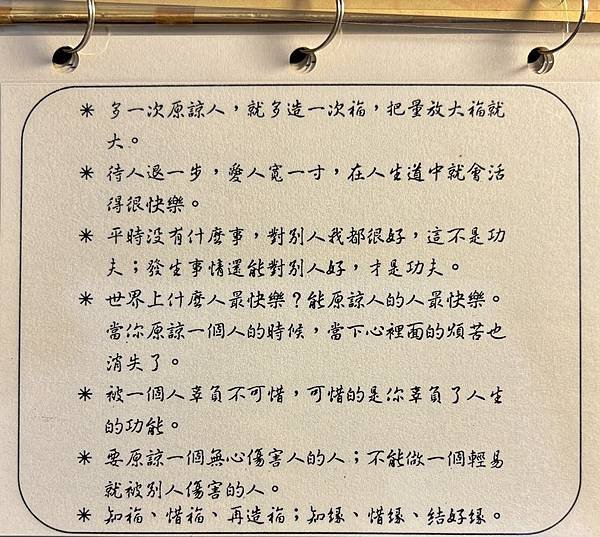 * 多一次原諒人，就多造一次福，把量放大福就
大。
* 待人退一步，愛人寬一寸，在人生道中就會活
得很快樂。
* 平時沒有什麼事，對別人我都很好，這不是功
夫；發生事情還能對別人好，才是功夫。
* 世界上什麼人最快樂？能原諒人的人最快樂。
當你原諒一個人的時候，當下心裡面的煩苦也
消失了。
* 被一個人辜負不可惜，可惜的是你辜負了人生
的功能。
* 要原諒一個無心傷害人的人；不能做一個輕易
就被別人傷害的人。
* 知福、惜福、再造福；知緣、惜緣、結好緣。